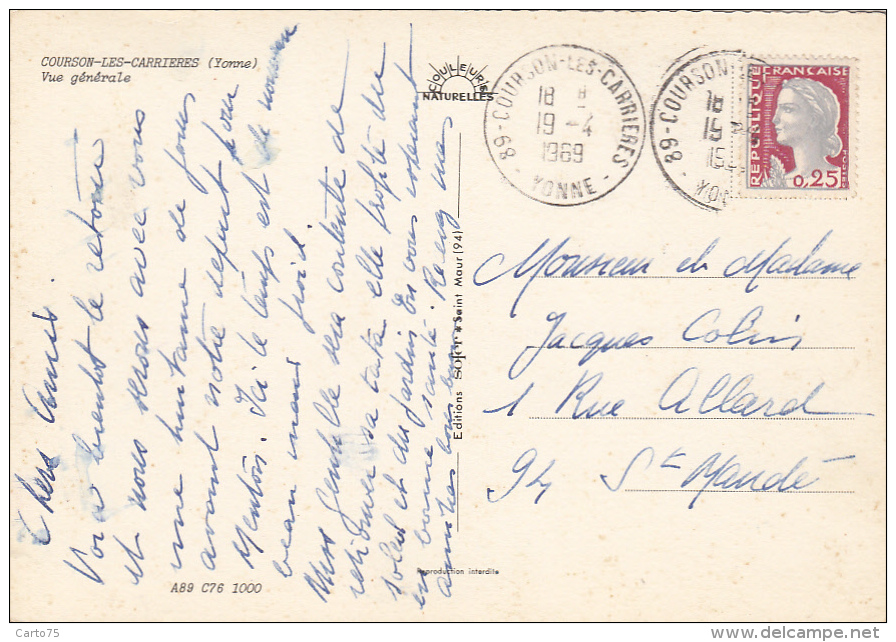 COURSON-LES-CARRIERES (Yonne)
Vue générale
COULEURS
NATURELLES
89 - COURSON-LES-CARRIERES
18 H
19 - 4
1969
- YONNE -
89 - COURSON
18
19
19
YON
REPUBLIQUE FRANÇAISE
POSTES
0,25
Chers Amis.
Voilà bientôt le retour
et nous serons avec vous
une huitaine de jours
avant notre départ pour
Menton. Ici le temps est de nouveau
beau mais froid.
Miss Gentille sera contente de
retrouver sa tata elle profite du
soleil et du jardin. En vous
en bonne santé. Recevez nos
amitiés
Editions SOFER Saint Maur (94)
Monsieur et Madame
Jacques Colin
1 Rue Allard
94 St Mandé
Reproduction interdite
A89 C76 1000
Carto75
www.delcampe.net